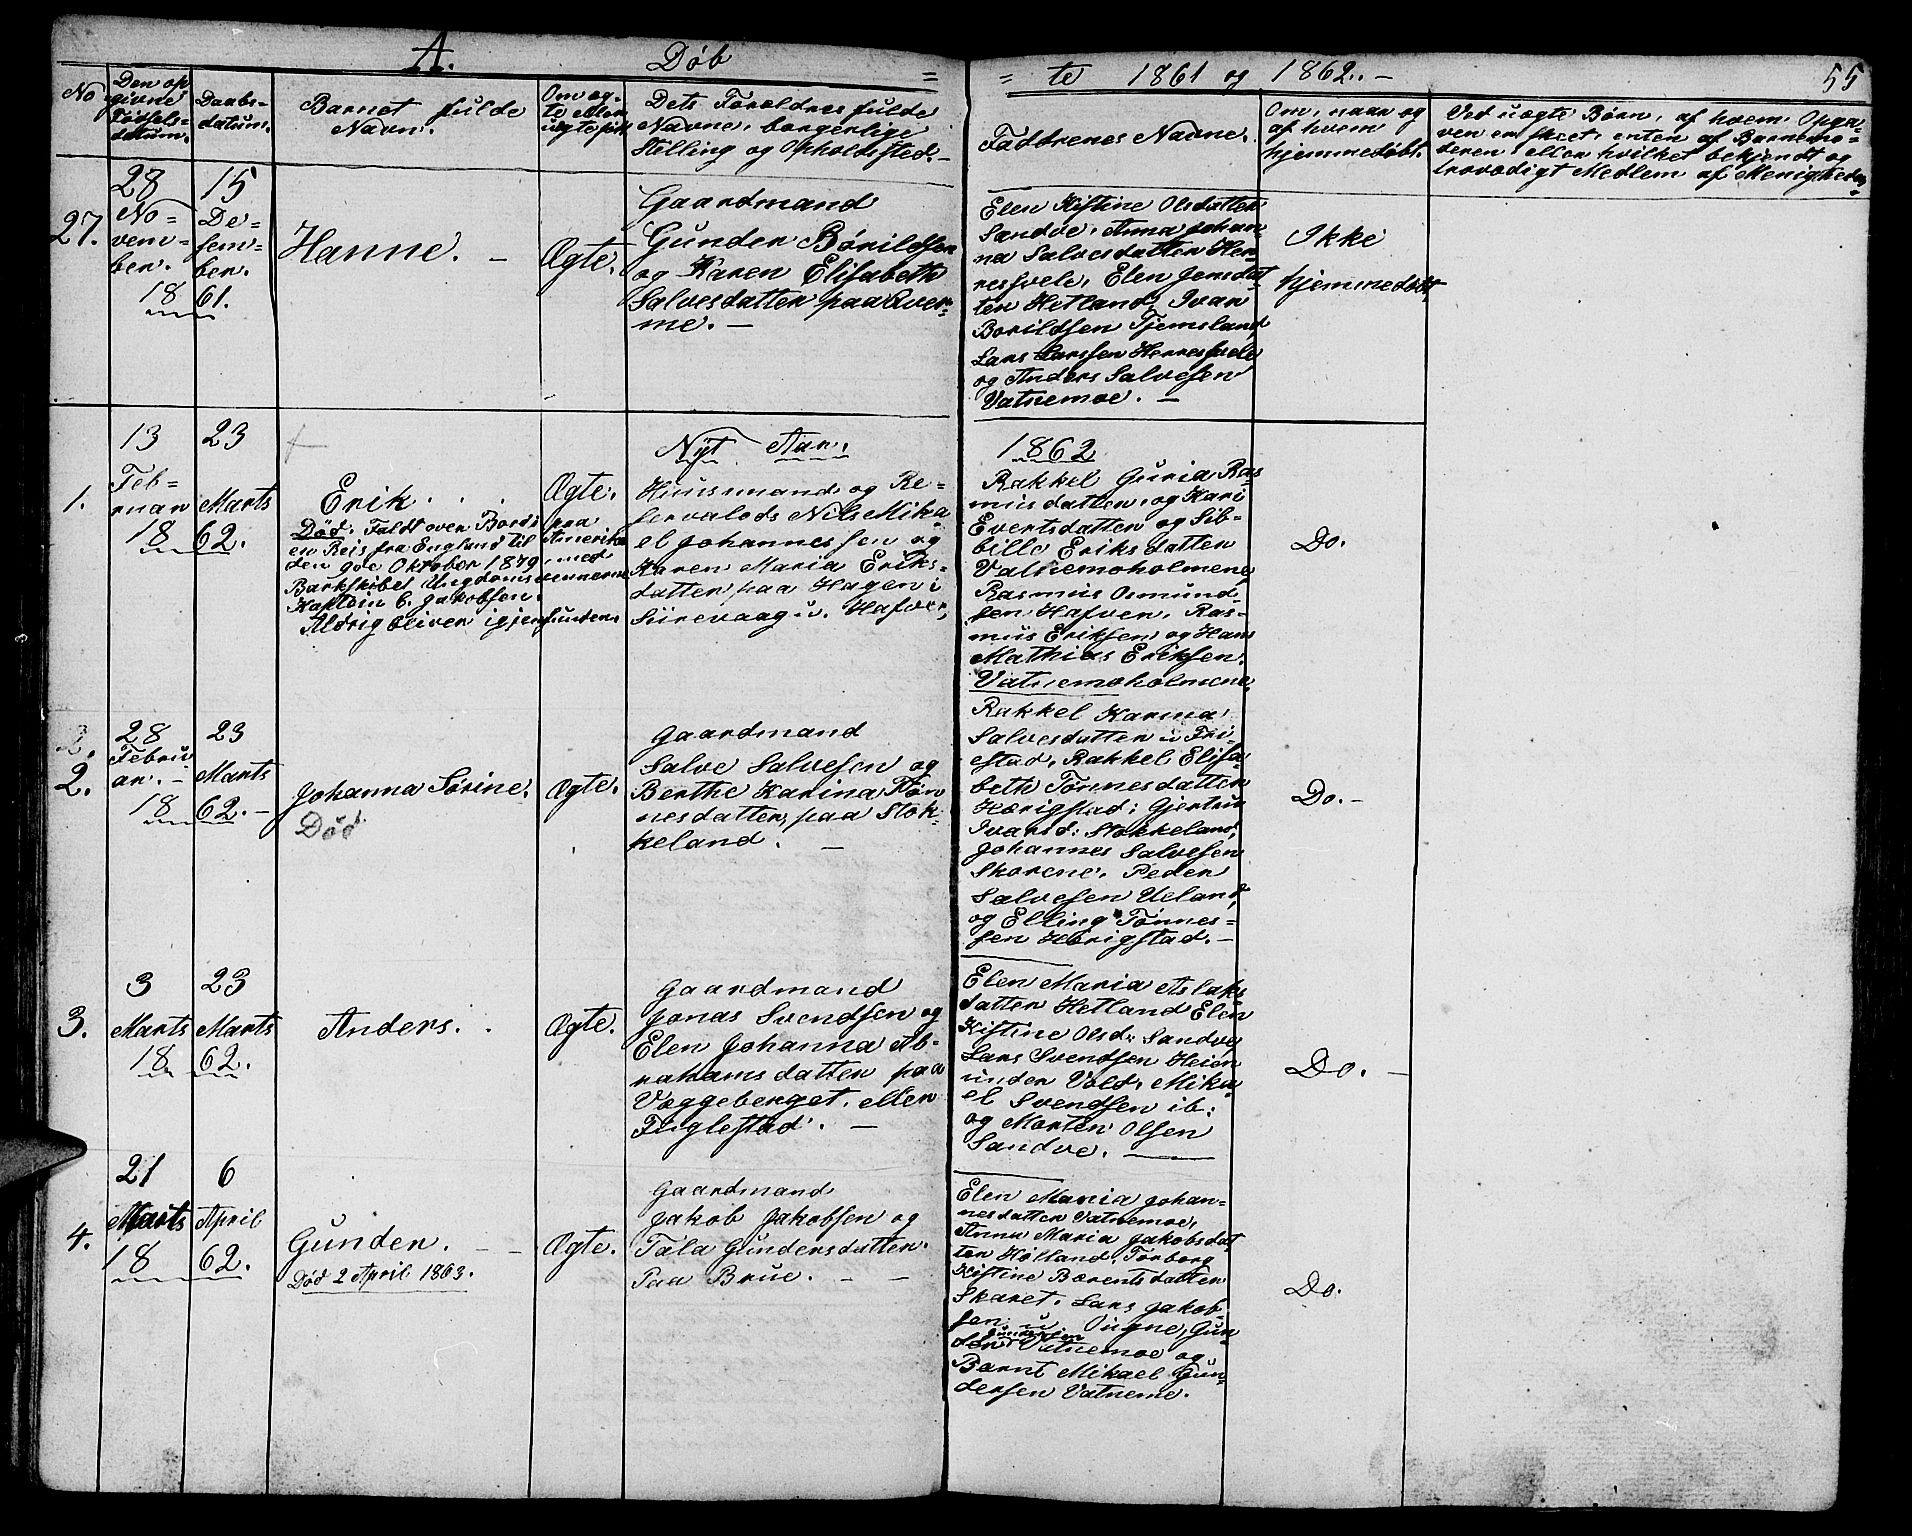 A. Døb = = te 1861 og 1862. - 55
No
Den op
givne
Fødsels-
datum.
Daabs-
datum.
Barnet fulde
Navn.
Om æg-
te eller
uægte født
Dets Forældres fulde
Navne, borgerlige
Stilling og Opholdsted. -
Faddrenes Navne.
Om, naar og
af hvem
hjemmedøbt.
Ved uægte Børn, af hvem Opga-
ven er skeet, enten af Barnemo-
deren, eller hvilket bekjendt og
troværdigt Medlem af Menigheden
27.
28
No-
vem-
ber.
18
15
De-
sem-
ber.
61.
Hanne. -
Ægte.
Gaardmand
Gunder Børildsen
og Karen Elisabeth
Salvesdatter paa Everø-
me. -
Elen Kistine Olsdatter
Sandve, Anna Johan-
na Salvesdatter Her-
resfvele, Elen Jensdat
ter Hetland, Ivar
Borildsen Tjemsland
Lars Larssen Herresfvele
og Anders Salvesen
Vatnemoe. -
Ikke
hjemmedøbt
Nyt Aar. 1862
1.
13
Feb-
ruar
18
23
Marts
62.
Erik. . .
Død. Faldt over Bord paa
en Reis fra England til Amerika
den 9de Oktober 1879, med
Barkskibet Ungdomsvennerne
Kaptein C. Jakobsen.
Aldrig bliver igjenfunden.
Ægte.
Huusmand og Re-
servalods Nils Mika-
el Johannessen og
Karen Maria Eriks-
datter paa Hagen i
Siirevaag u. Hafver,
Rakkel Guria Ras
musdatter, og Kari
Evertsdatter og Sib-
bille Eriksdatter
Vatnemoholmene
Rasmus Osmund-
sen Hafver, Ras-
mus Eriksen, og Hans
Mathias Eriksen,
Vatnemoholmene,
Do.
2.
2.
28
Febru
ar. -
18
23
Marts
62. -
Johanna Sørine.
Død
Ægte.
Gaardmand
Salve Salvesen og
Berthe Karina Tøn
nesdatter, paa Stok-
keland. -
Rakkel Karina
Salvesdatter u Fri-
estad, Rakkel Elisa-
beth Tønnesdatter
Hærigstad; Gjertrue
Ivarsd: Stokkeland,
Johannes Salvesen
Skorene, Peder
Salvesen Ueland,
og Elling Tønnes-
sen Hærigstad. -
Do. -
3.
3
Marts
18
23
Marts
62.
Anders. .
Ægte.
Gaardmand
Jonas Svendsen og
Elen Johanna Ab-
rahamsdatter paa
Væggeberget, eller
Fuglestad. -
Elen Maria Aslaks
datter Hetland Elen
Kistine Olsd: Sandve,
Lars Svendsen Heien
under Vold, Mika-
el Svendsen ib:
og Morten Olsen
Sandve. -
Do. -
4.
21
Marts
18
6
April
62.
Gunder. - -
Død 2 April 1863.
Ægte.
Gaardmand
Jakob Jakobsen og
Tala Gundersdatter.
Paa Brue. - -
Elen Maria Johan-
nesdatter Vatnemoe,
Anna Maria Jakobsdat-
ter Hølland, Torborg
Kistine Bærentsdatter
Skaret. Lars Jakob-
sen u Ougne, Gun-
der Gundersen Vatnemoe og
Barnt Mikael Gun-
dersen Vatneme.
Do.